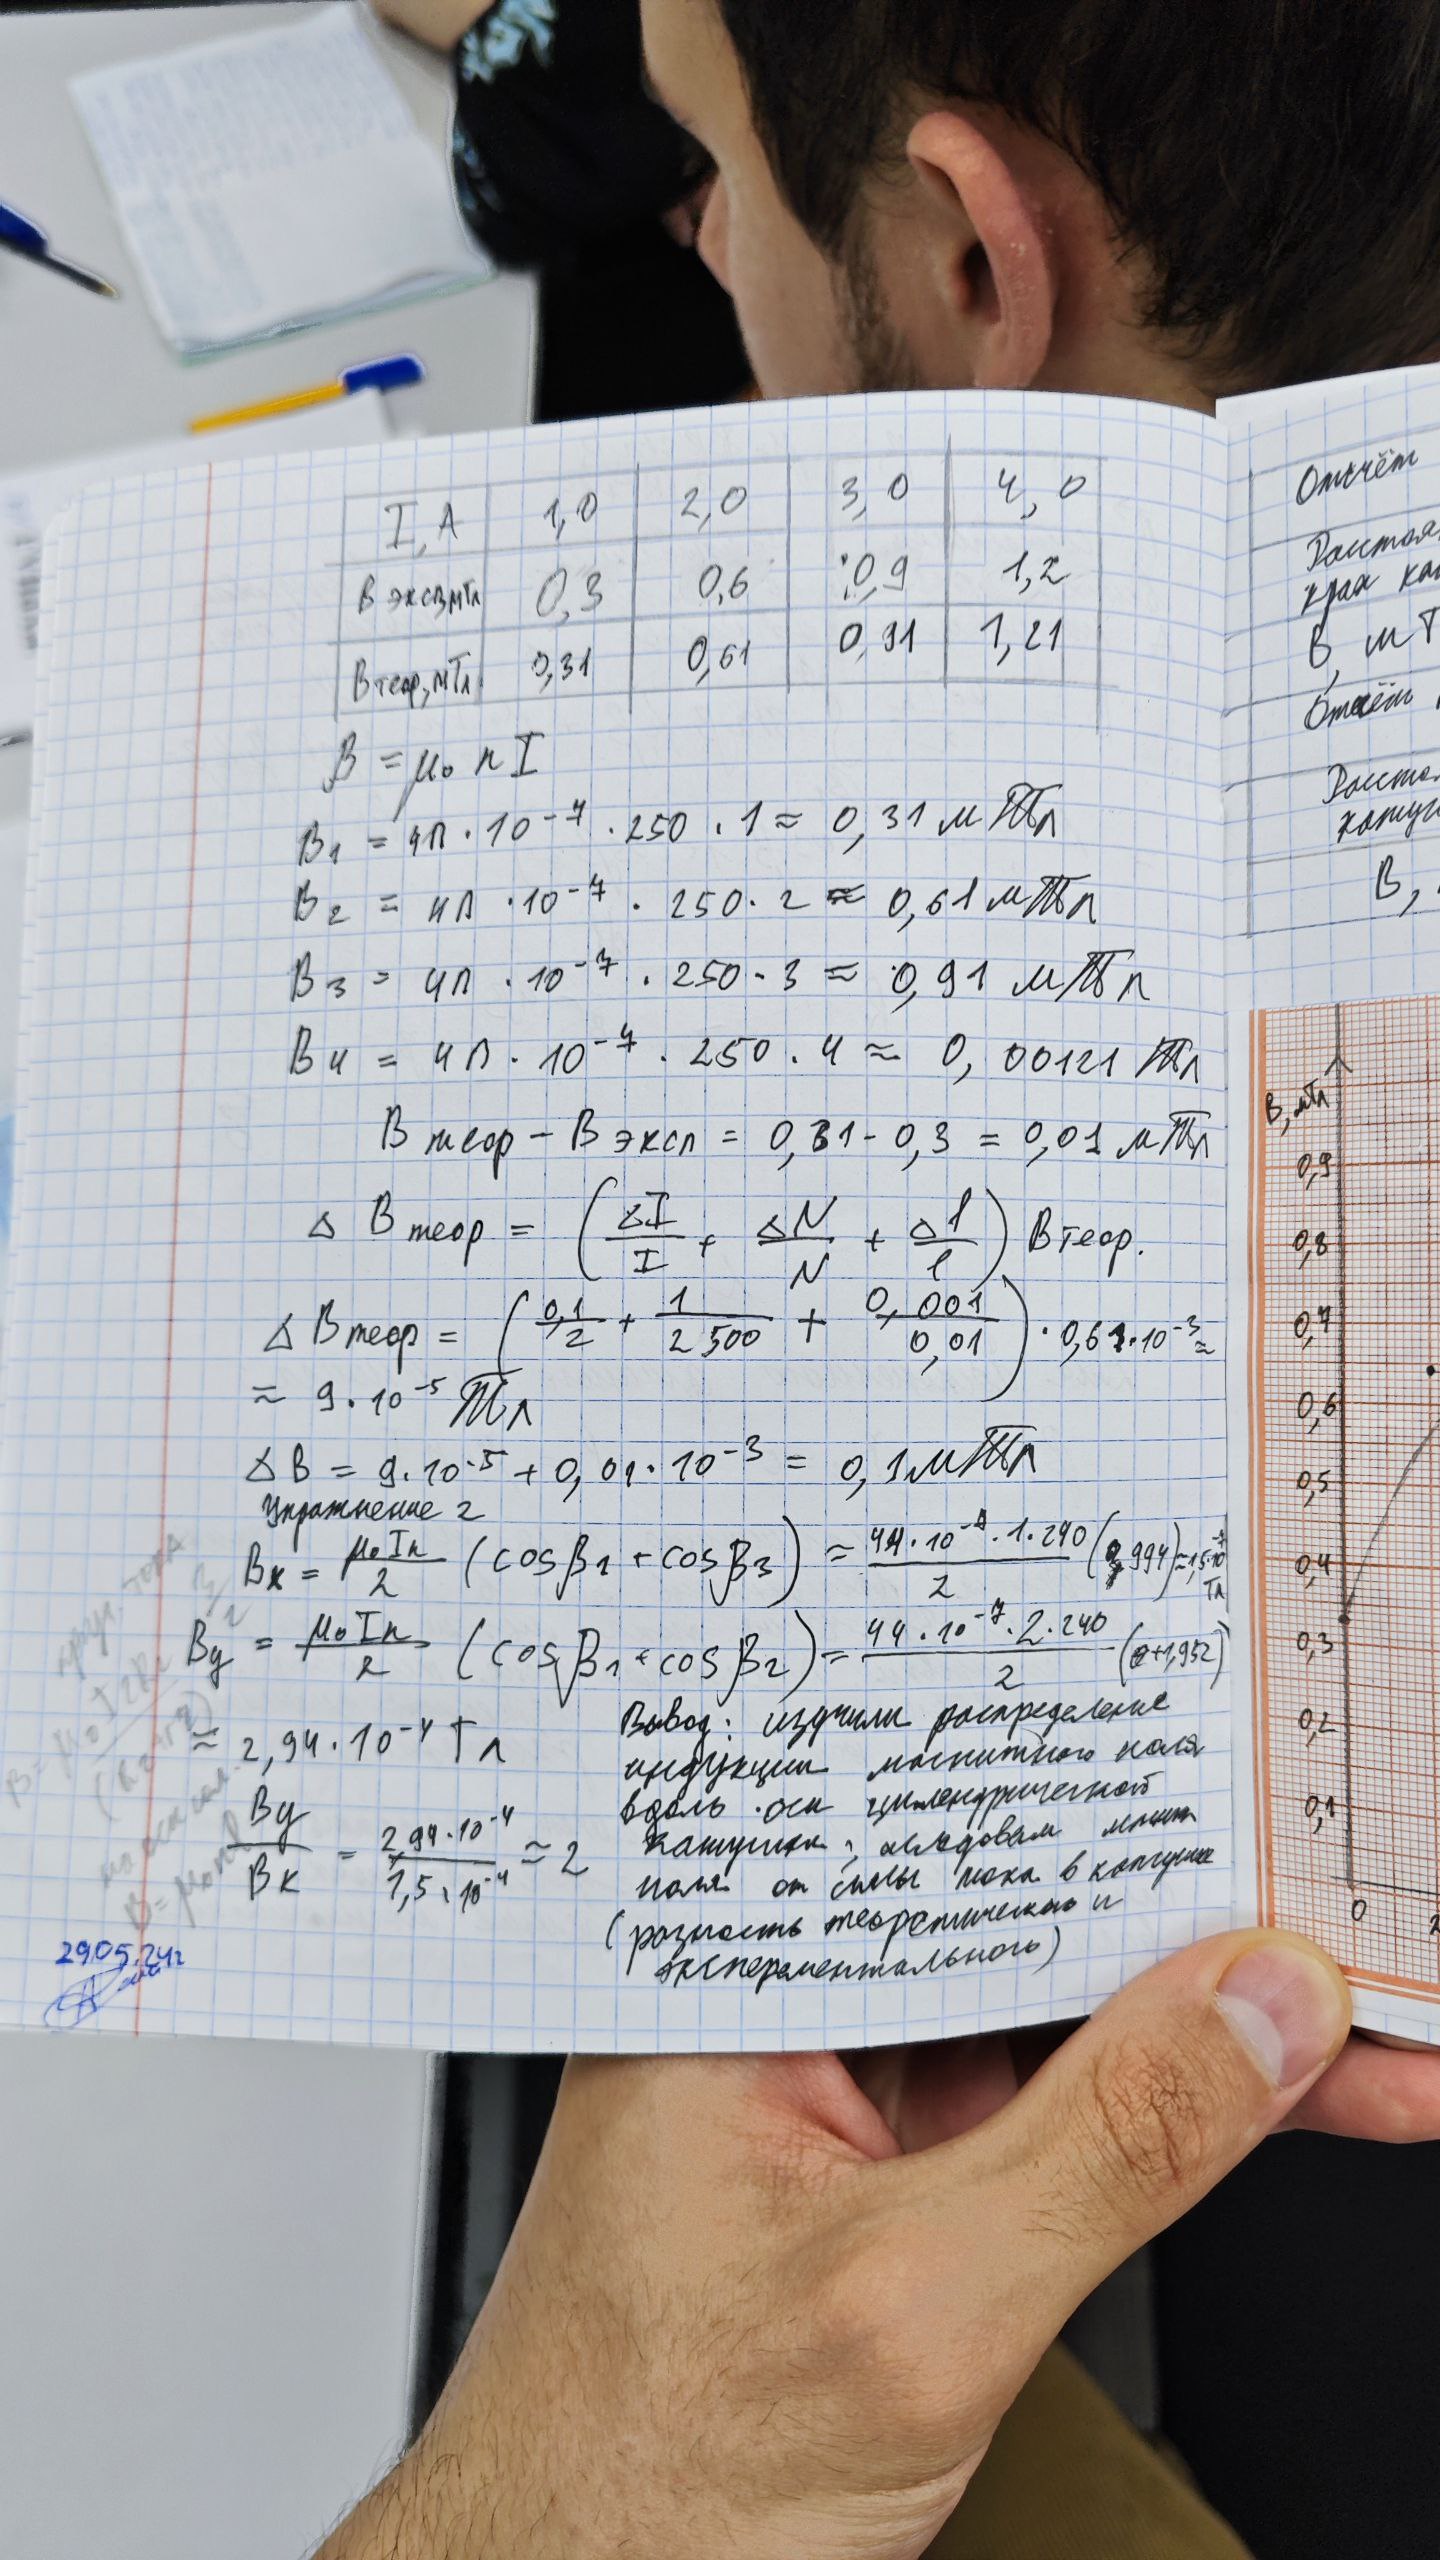 I, А 1,0 2,0 3,0 4,0
В эксп,мТл 0,3 0,6 0,9 1,2
В теор,мТл 0,31 0,61 0,91 1,21
B = μ₀ n I
B₁ = 4П · 10⁻⁷ · 250 · 1 ≈ 0,31 мТл
B₂ = 4П · 10⁻⁷ · 250 · 2 ≈ 0,61 мТл
B₃ = 4П · 10⁻⁷ · 250 · 3 ≈ 0,91 мТл
B₄ = 4П · 10⁻⁷ · 250 · 4 ≈ 0,00121 Тл
В теор – В эксп = 0,31 - 0,3 = 0,01 мТл
Δ В теор = (ΔI/I + ΔN/N + Δl/l) В теор.
Δ В теор = (0,1/2 + 1/2500 + 0,001/0,01) · 0,61·10⁻³ ≈
≈ 9·10⁻⁵ Тл
ΔB = 9·10⁻⁵ + 0,01·10⁻³ = 0,1 мТл
Упражнение 2
Bк = μ₀In/2 (cosβ₁ + cosβ₂) = ·10⁻⁷·1·240/2
By = μ₀In/2 (cosβ₁ + cosβ₂) = ·10⁻⁷·2·240/2
≈ 2,94·10⁻⁴ Тл
By/Bк = 2,94·10⁻⁴/1,5·10⁻⁴ ≈ 2
Вывод: изучили распределение
индукции магнитного поля
вдоль оси цилендрической
катушки,
поля от силы тока в катушке
(разность теоретического и
экспериментального)
29.05.24г
Отсчёт
Расстоя
края кат
В, мТ
Отсчёт
Расстоя
катуш
В,
В, мТл
0,9
0,8
0,7
0,6
0,5
0,4
0,3
0,2
0,1
0 2